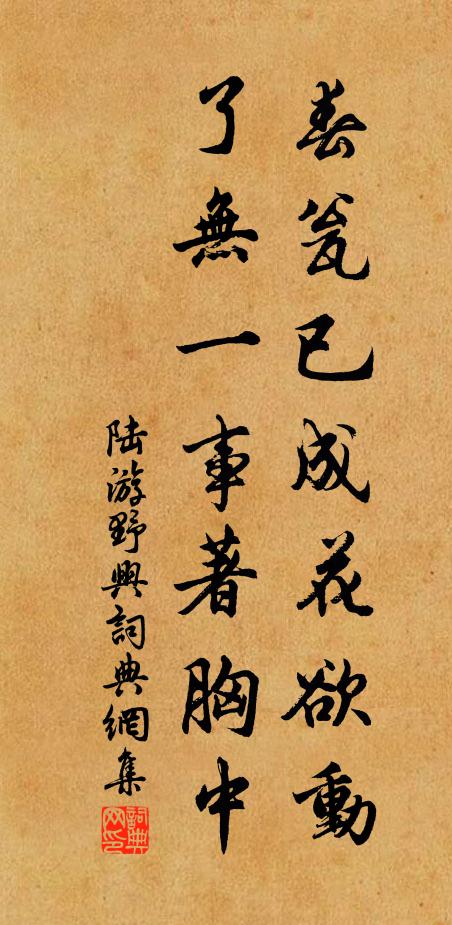 春瓮已成花欲動
了無一事著胸中
陆游野興詞典網集
詞典网印